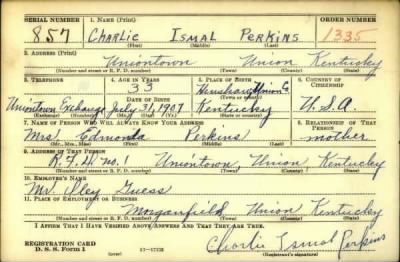 SERIAL NUMBER 1. NAME (Print) ORDER NUMBER
857 CHARLIE ISMAL PERKINS 1335
(First) (Middle) (Last)
3. ADDRESS (Print)
Uniontown Union Kentucky
(Number and street or R. F. D. number) (Town) (County) (State)
4. TELEPHONE 5. AGE IN YEARS 6. PLACE OF BIRTH 7. COUNTRY OF CITIZENSHIP
33 Henshaw Union Co.
Uniontown Exchange DATE OF BIRTH
July 31, 1907 Kentucky U.S.A.
(Exchange) (Number) (Mo.) (Day) (Yr.) (State or country)
7. NAME OF PERSON WHO WILL ALWAYS KNOW YOUR ADDRESS 8. RELATIONSHIP OF THAT PERSON
Mrs. Edmonda Perkins mother
(Mr., Mrs., Miss) (First) (Middle) (Last)
9. ADDRESS OF THAT PERSON
R.F.D. no. 1 Uniontown, Union, Kentucky
(Number and street or R. F. D. number) (Town) (County) (State)
10. EMPLOYER'S NAME
Mr. Iley Guess
11. PLACE OF EMPLOYMENT OR BUSINESS
Morganfield Union Kentucky
(Number and street or R. F. D. number) (Town) (County) (State)
I AFFIRM THAT I HAVE VERIFIED ABOVE ANSWERS AND THAT THEY ARE TRUE.
REGISTRATION CARD
D. S. S. Form 1 Charlie Ismal Perkins
(Registrant's signature)